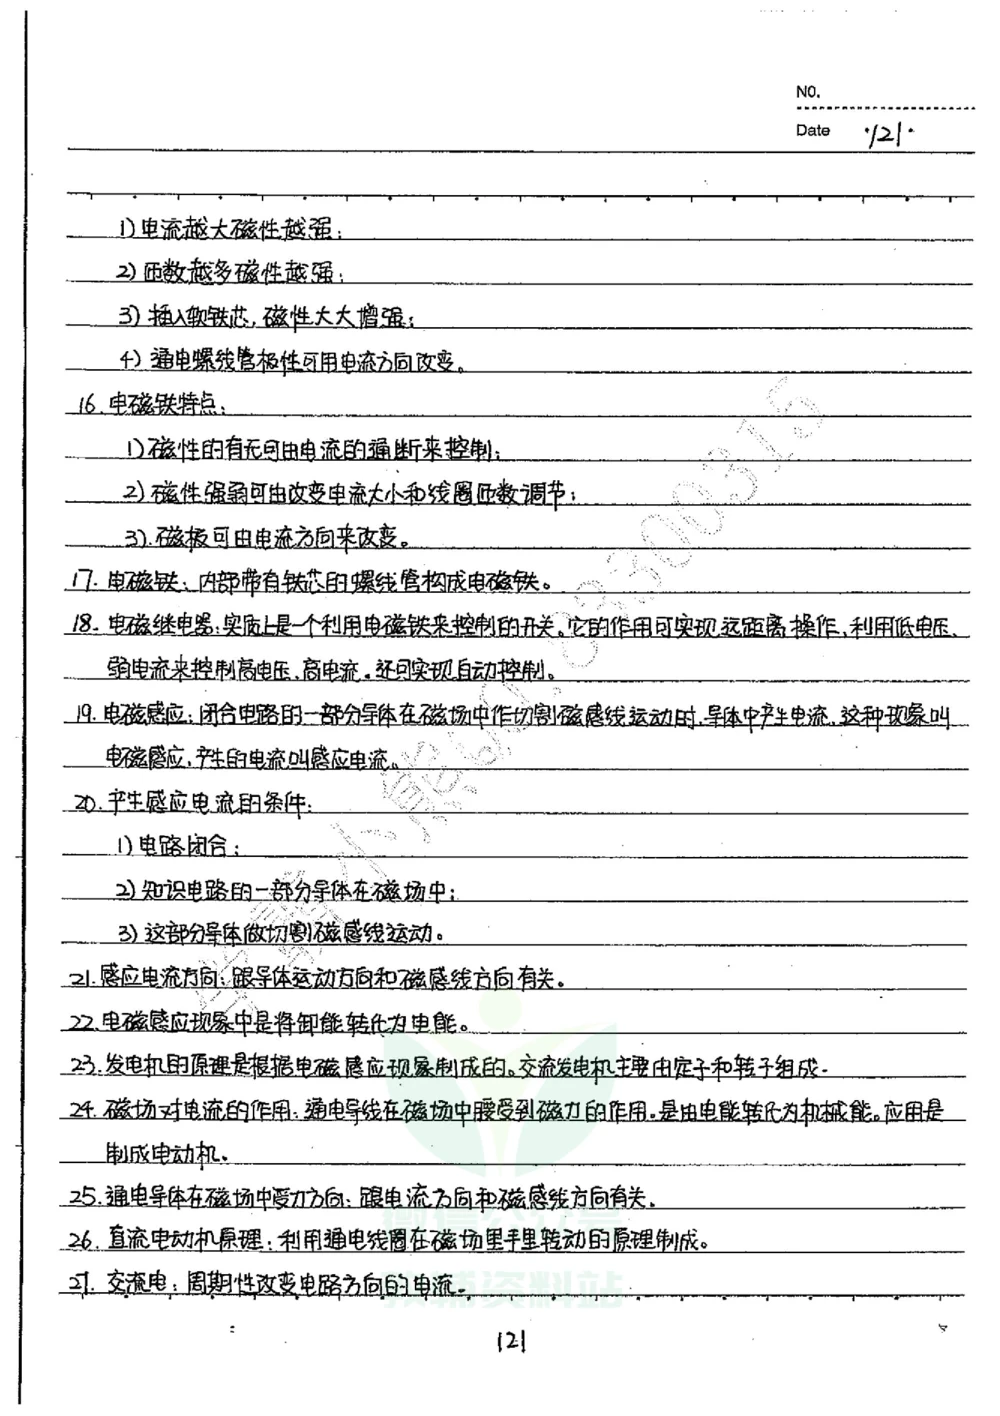 NO.
Date ·121·
1) 电流越大磁性越强;
2) 匝数越多磁性越强;
3) 插入软铁芯,磁性大大增强;
4) 通电螺线管极性可用电流方向改变。
16. 电磁铁特点:
1) 磁性的有无可由电流的通断来控制;
2) 磁性强弱可由改变电流大小和线圈匝数调节;
3). 磁极可由电流方向来改变。
17. 电磁铁: 内部带有铁芯的螺线管构成电磁铁。
18. 电磁继电器: 实质上是一个利用电磁铁来控制的开关。它的作用可实现远距离操作,利用低电压、
弱电流来控制高电压、高电流。还可实现自动控制。
19. 电磁感应: 闭合电路的一部分导体在磁场中作切割磁感线运动时,导体中产生电流,这种现象叫
电磁感应,产生的电流叫感应电流。
20. 产生感应电流的条件:
1) 电路闭合;
2) 知识电路的一部分导体在磁场中;
3) 这部分导体做切割磁感线运动。
21. 感应电流方向: 跟导体运动方向和磁感线方向有关。
22. 电磁感应现象中是将卸能转化为电能。
23. 发电机的原理是根据电磁感应现象制成的。交流发电机主要由定子和转子组成.
24. 磁场对电流的作用: 通电导线在磁场中要受到磁力的作用.是由电能转化为机械能。应用是
制成电动机。
25. 通电导体在磁场中受力方向: 跟电流方向和磁感线方向有关.
26. 直流电动机原理: 利用通电线圈在磁场里手里转动的原理制成。
27. 交流电: 周期性改变电路方向的电流.
121
微信公众号
教辅资料站